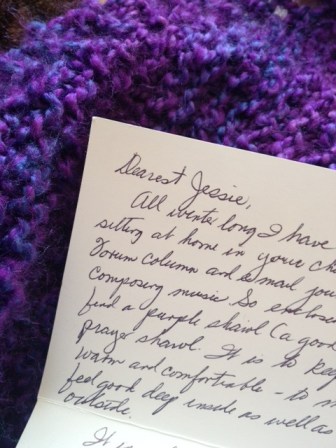 Dearest Jessie,
All winter long I have
sitting at home in your ch
Forum column and e mail you
composing music. So enclose
find a purple shawl (a good
prayer shawl. It is to keep
warm and comfortable - to m
feel good deep inside as well as
outside.
It is